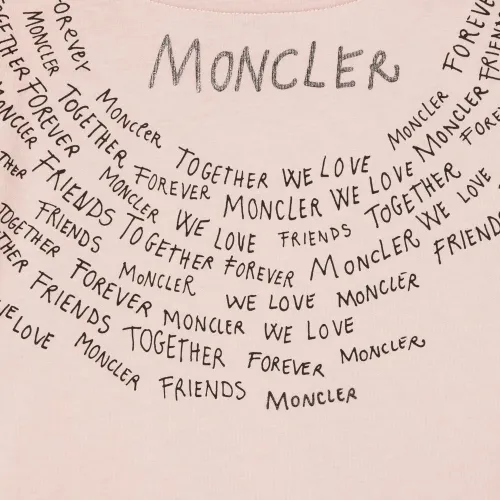 MONCLER
FOREVER MONCLER TOGETHER WE LOVE MONCLER FOREVER
MONCLER TOGETHER FOREVER MONCLER WE LOVE MONCLER FRIENDS
TOGETHER FOREVER MONCLER WE LOVE FRIENDS TOGETHER
MONCLER FRIENDS TOGETHER FOREVER MONCLER WE LOVE
FRIENDS MONCLER WE LOVE MONCLER FRIEND
TOGETHER FOREVER MONCLER WE LOVE
FRIENDS TOGETHER FOREVER MONCLER
WE LOVE MONCLER FRIENDS MONCLER